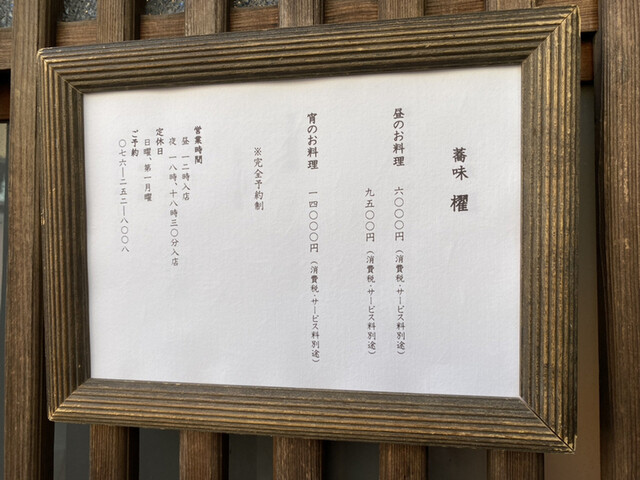 蕎味 櫂
昼のお料理 六〇〇〇円(消費税・サービス料別途)
九五〇〇円(消費税・サービス料別途)
宵のお料理 一四〇〇〇円(消費税・サービス料別途)
※完全予約制
営業時間
昼 一二時入店
夜 一八時、十八時三〇分入店
定休日
日曜、第一月曜
ご予約
〇七六―二五二―八〇〇八